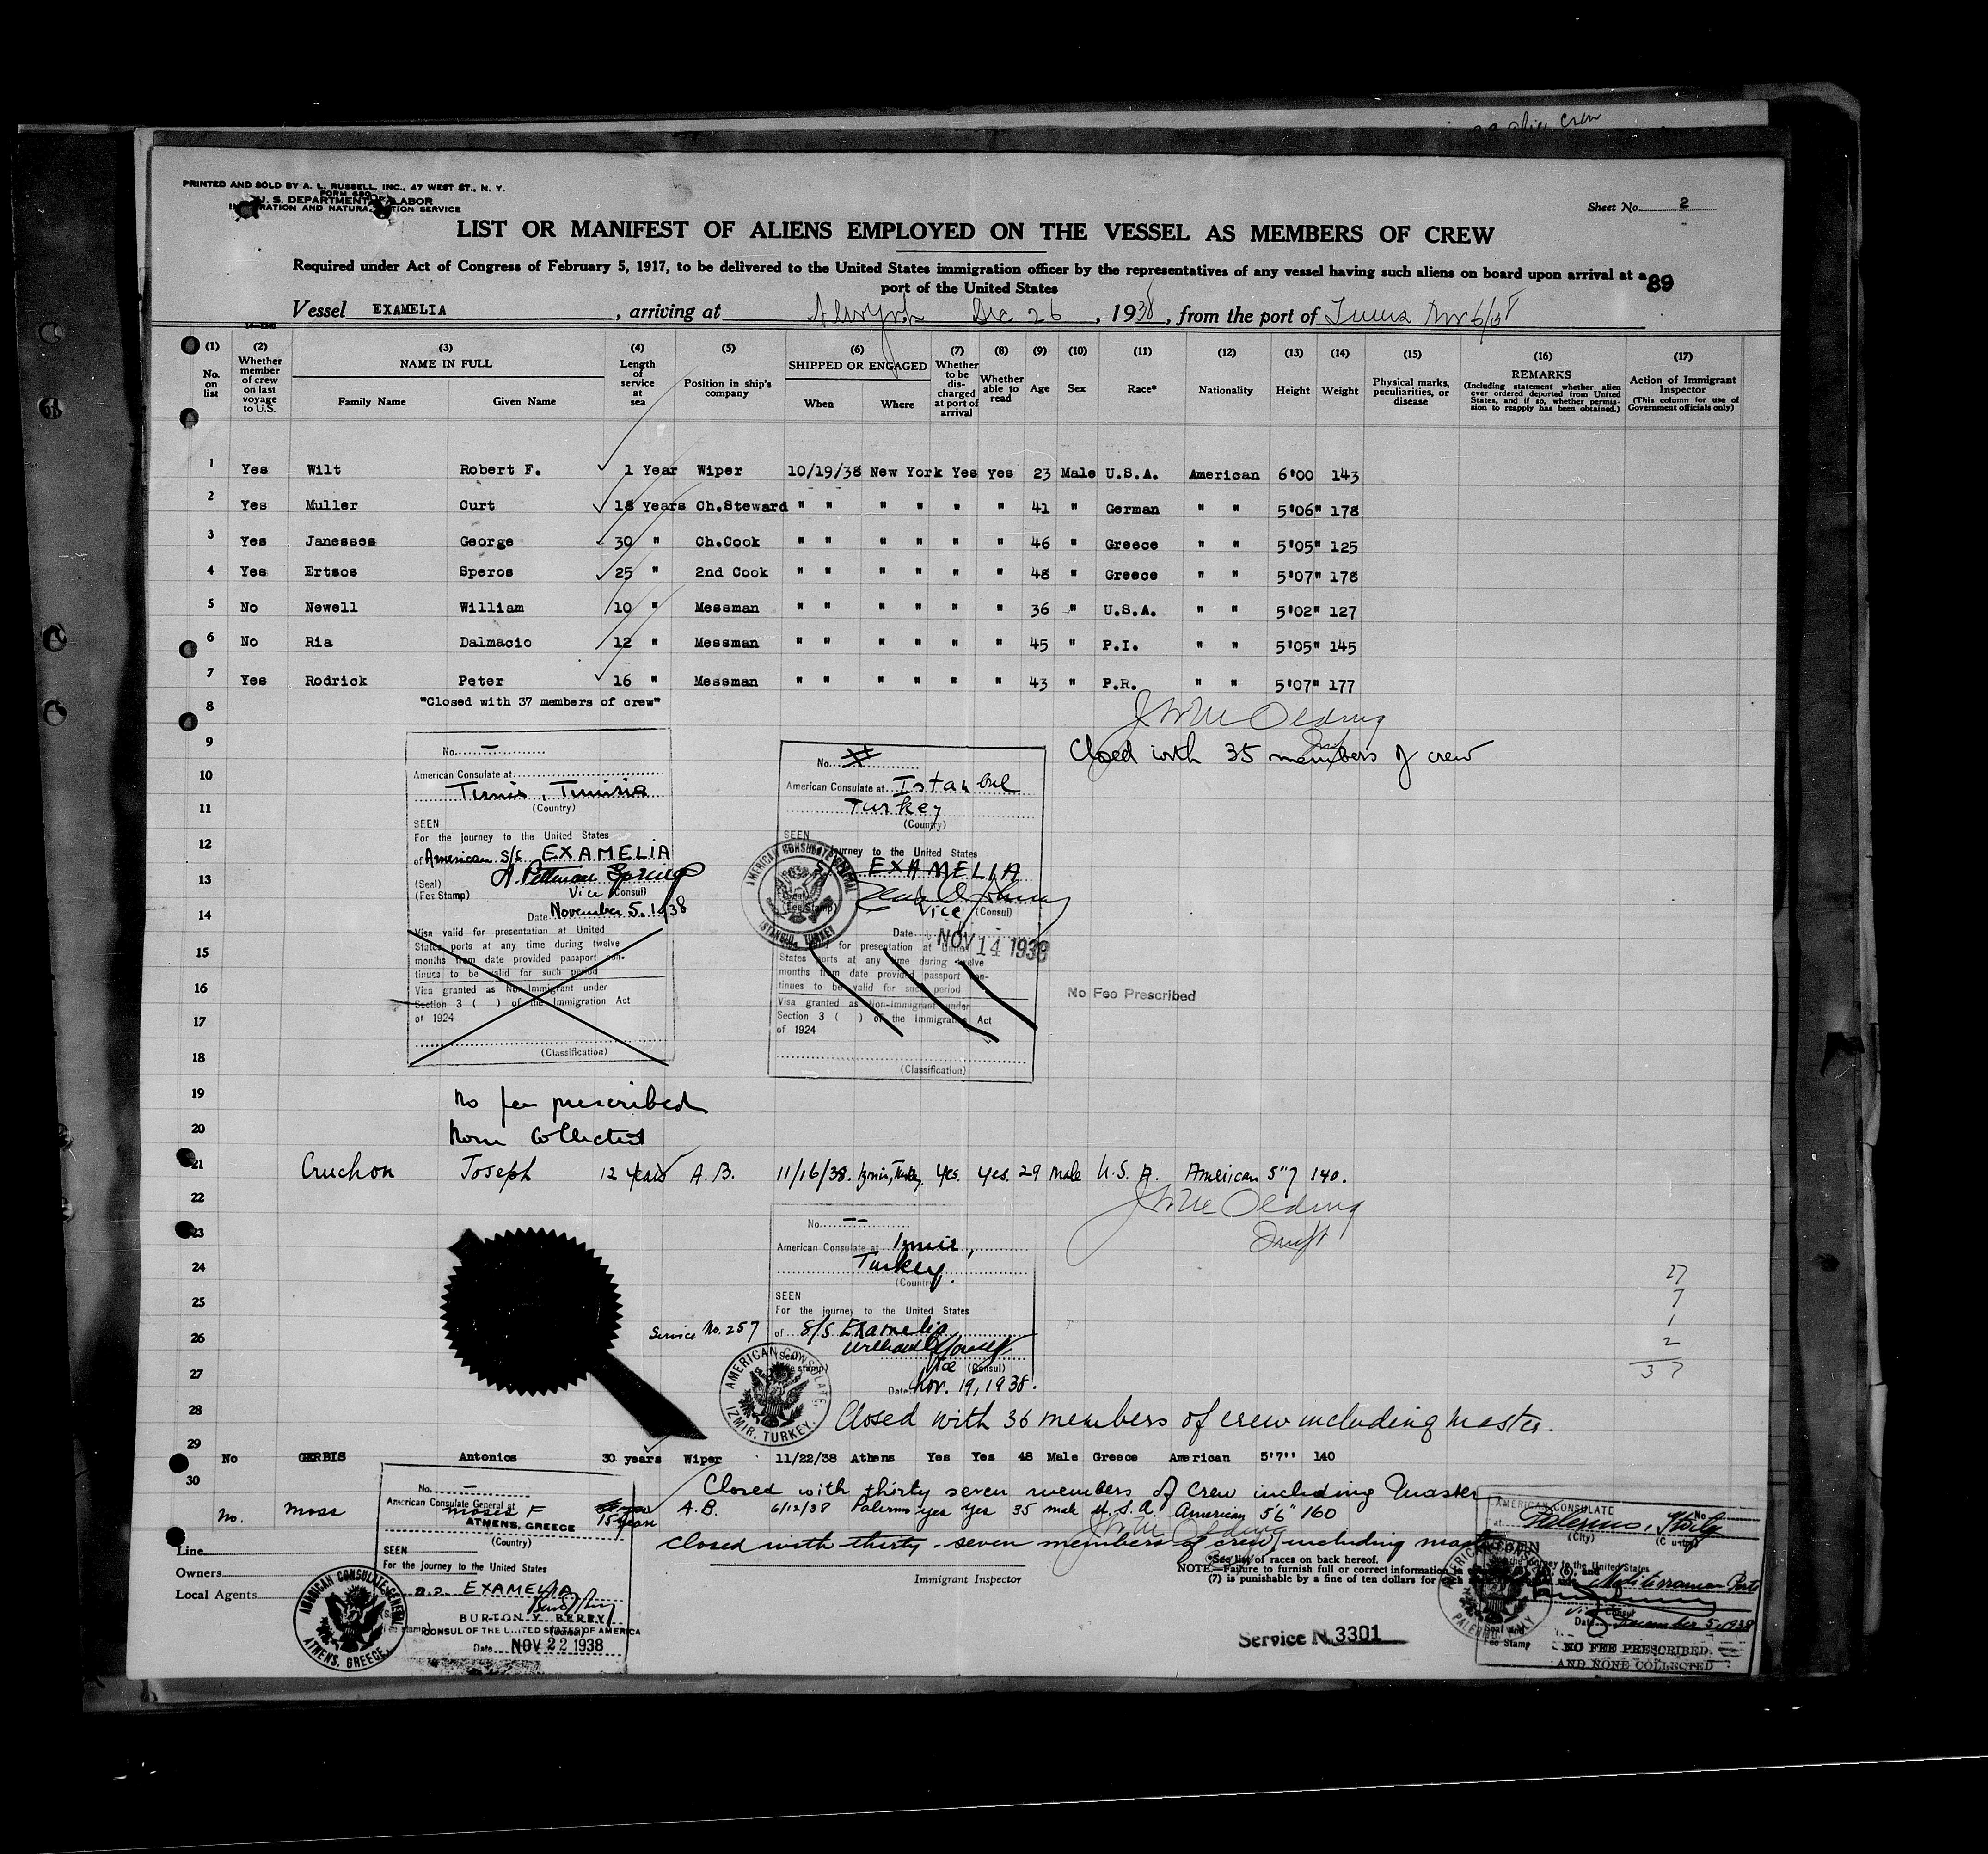 PRINTED AND SOLD BY A. L. RUSSELL, INC., 47 WEST ST., N. Y.
FORM 680
U. S. DEPARTMENT OF LABOR
Sheet No. 2
LIST OR MANIFEST OF ALIENS EMPLOYED ON THE VESSEL AS MEMBERS OF CREW
Required under Act of Congress of February 5, 1917, to be delivered to the United States immigration officer by the representatives of any vessel having such aliens on board upon arrival at a
port of the United States
89
Vessel EXAMELIA, arriving at Dec 26, 1938, from the port of
(1) No. on list
(2) Whether member of crew on last voyage to U.S.
(3) NAME IN FULL Family Name Given Name
(4) Length of service at sea
(5) Position in ship's company
(6) SHIPPED OR ENGAGED When Where
(7) Whether to be discharged at port of arrival
(8) Whether able to read
(9) Age
(10) Sex
(11) Race*
(12) Nationality
(13) Height
(14) Weight
(15) Physical marks, peculiarities, or disease
(16) REMARKS (Including statement whether alien ever ordered deported from United States, and if so, whether permission to reapply has been obtained.)
(17) Action of Immigrant Inspector (This column for use of Government officials only)
1 Yes Wilt Robert F. 1 Year Wiper 10/19/38 New York Yes Yes 23 Male U.S.A. American 6'00 143
2 Yes Muller Curt 18 Years Ch.Steward " " " " " " 41 " German " " 5'06" 178
3 Yes Janesses George 30 " Ch.Cook " " " " " " 46 " Greece " " 5'05" 125
4 Yes Ertsos Speros 25 " 2nd Cook " " " " " " 48 " Greece " " 5'07" 178
5 No Newell William 10 " Messman " " " " " " 36 " U.S.A. " " 5'02" 127
6 No Ria Dalmacio 12 " Messman " " " " " " 45 " P.I. " " 5'05" 145
7 Yes Rodrick Peter 16 " Messman " " " " " " 43 " P.R. " " 5'07" 177
8 "Closed with 37 members of crew"
9
Closed with 35 members of crew
10
11
12
13
14
15
16
17
18
19
20
No.
American Consulate at
Tunis, Tunisia
(Country)
SEEN
For the journey to the United States
of American S/S EXAMELIA
(Seal)
(Fee Stamp) Vice (Consul)
Date November 5. 1938
Visa valid for presentation at United
States ports at any time during twelve
months from date provided passport con-
tinues to be valid for such period
Visa granted as Non-Immigrant under
Section 3 ( ) of the Immigration Act
of 1924
(Classification)
No.
American Consulate at Istanbul
Turkey
(Country)
SEEN
journey to the United States
EXAMELIA
(Fee Stamp) Vice (Consul)
AMERICAN CONSULATE GENERAL
ISTANBUL, TURKEY
Date NOV 14 1938
for presentation at United
States ports at any time during twelve
months from date provided passport con-
tinues to be valid for such period
Visa granted as Non-Immigrant under
Section 3 ( ) of the Immigration Act
of 1924
(Classification)
No Fee Prescribed
No fee prescribed
None Collected
21 Cruchon Joseph 12 years A.B. 11/16/38. Izmir, Turkey. Yes. Yes. 29 male U.S.A. American 5"7 140.
22
23
24
25
26
27
28
No.
American Consulate at Izmir,
Turkey.
(Country)
SEEN
For the journey to the United States
Service No. 257 of S/S Examelia
(Seal)
Vice (Consul)
Date Nov. 19, 1938.
AMERICAN CONSULATE
IZMIR, TURKEY.
27
7
1
2
37
Closed with 36 members of crew including Master.
29 No GERBIS Antonios 30 years Wiper 11/22/38 Athens Yes Yes 48 Male Greece American 5'7'' 140
30
Closed with thirty seven members of Crew including Master
No. Moss Moses F 15 years A.B. 6/12/38 Palermo yes Yes 35 male U.S.A. American 5'6" 160
closed with thirty-seven members of crew, including master
No.
American Consulate General at
ATHENS, GREECE
(Country)
SEEN
For the journey to the United States
s.s. EXAMELIA
BURTON Y. BERRY
CONSUL OF THE UNITED STATES OF AMERICA
Date NOV 22 1938
AMERICAN CONSULATE GENERAL
ATHENS, GREECE
Line
Owners
Local Agents
Immigrant Inspector
*See list of races on back hereof.
NOTE.—Failure to furnish full or correct information in
(7) is punishable by a fine of ten dollars for each
Service No 3301
AMERICAN CONSULATE No.
at Palermo, Sicily
(City)
SEEN
journey to the United States
Mediterranean Ports
Vice Consul
Date December 5, 1938
Seal and
Fee Stamp
NO FEE PRESCRIBED
AND NONE COLLECTED
PALERMO, ITALY